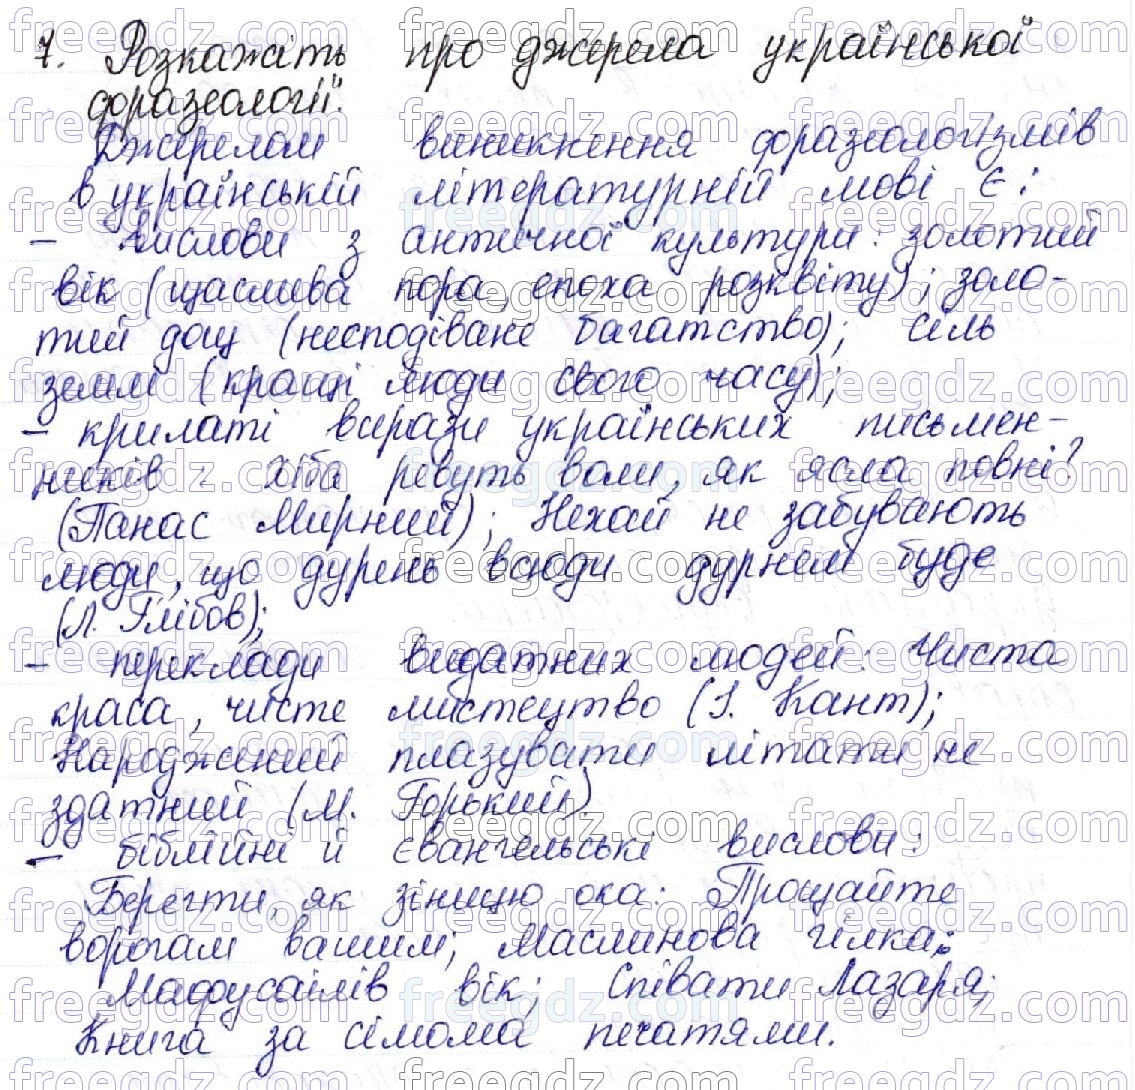 7. Розкажіть про джерела української
фразеології.
Джерелом виникнення фразеологізмів
в українській літературній мові є:
– вислови з античної культури: золотий
вік (щаслива пора, епоха розквіту); золо-
тий дощ (несподіване багатство); сіль
землі (кращі люди свого часу);
– крилаті вирази українських письмен-
ників: Хіба ревуть воли, як ясла повні?
(Панас Мирний); Нехай не забувають
люди, що дурень всюди дурнем буде
(Л. Глібов);
– переклади видатних людей: Чиста
краса, чисте мистецтво (І. Кант);
Народжений плазувати літати не
здатний (М. Горький).
– біблійні й євангельські вислови:
Берегти, як зіницю ока: Прощайте
ворогам вашим; Маслинова гілка:
Мафусаїлів вік; Співати Лазаря;
Книга за сімома печатями.
freegdz.com